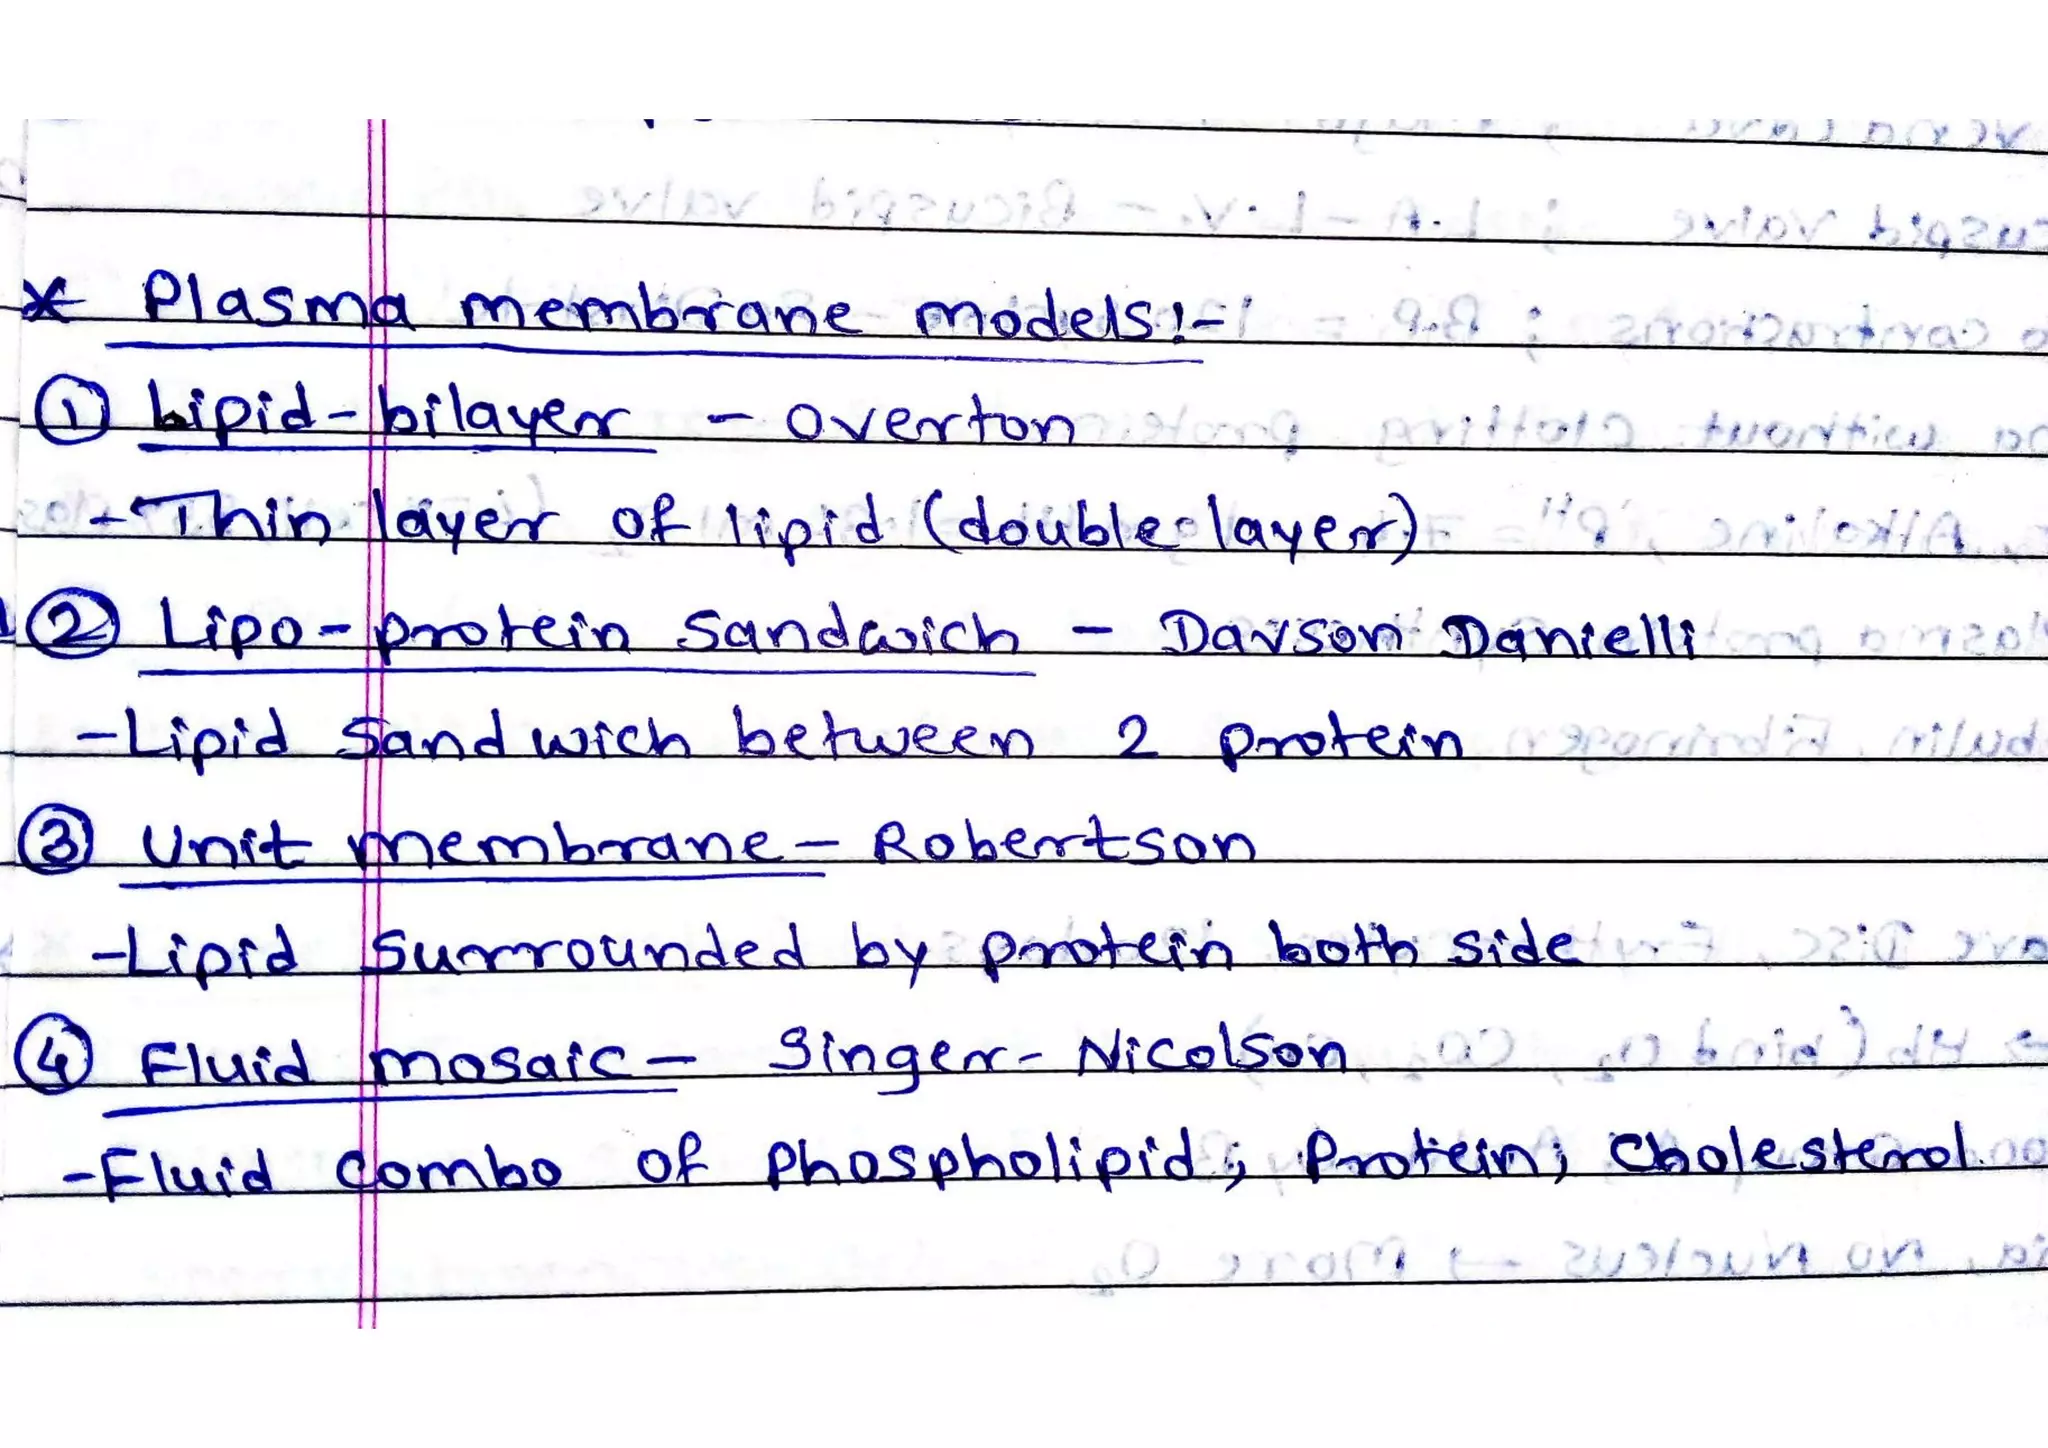 * Plasma membrane models:-
① Lipid-bilayer - Overton
- Thin layer of lipid (double layer)
② Lipo-protein sandwich - Davson Danielli
- Lipid sandwich between 2 protein
③ Unit membrane - Robertson
- Lipid surrounded by protein both side
④ Fluid mosaic - Singer - Nicolson
- Fluid combo of phospholipid; Protein; Cholesterol.